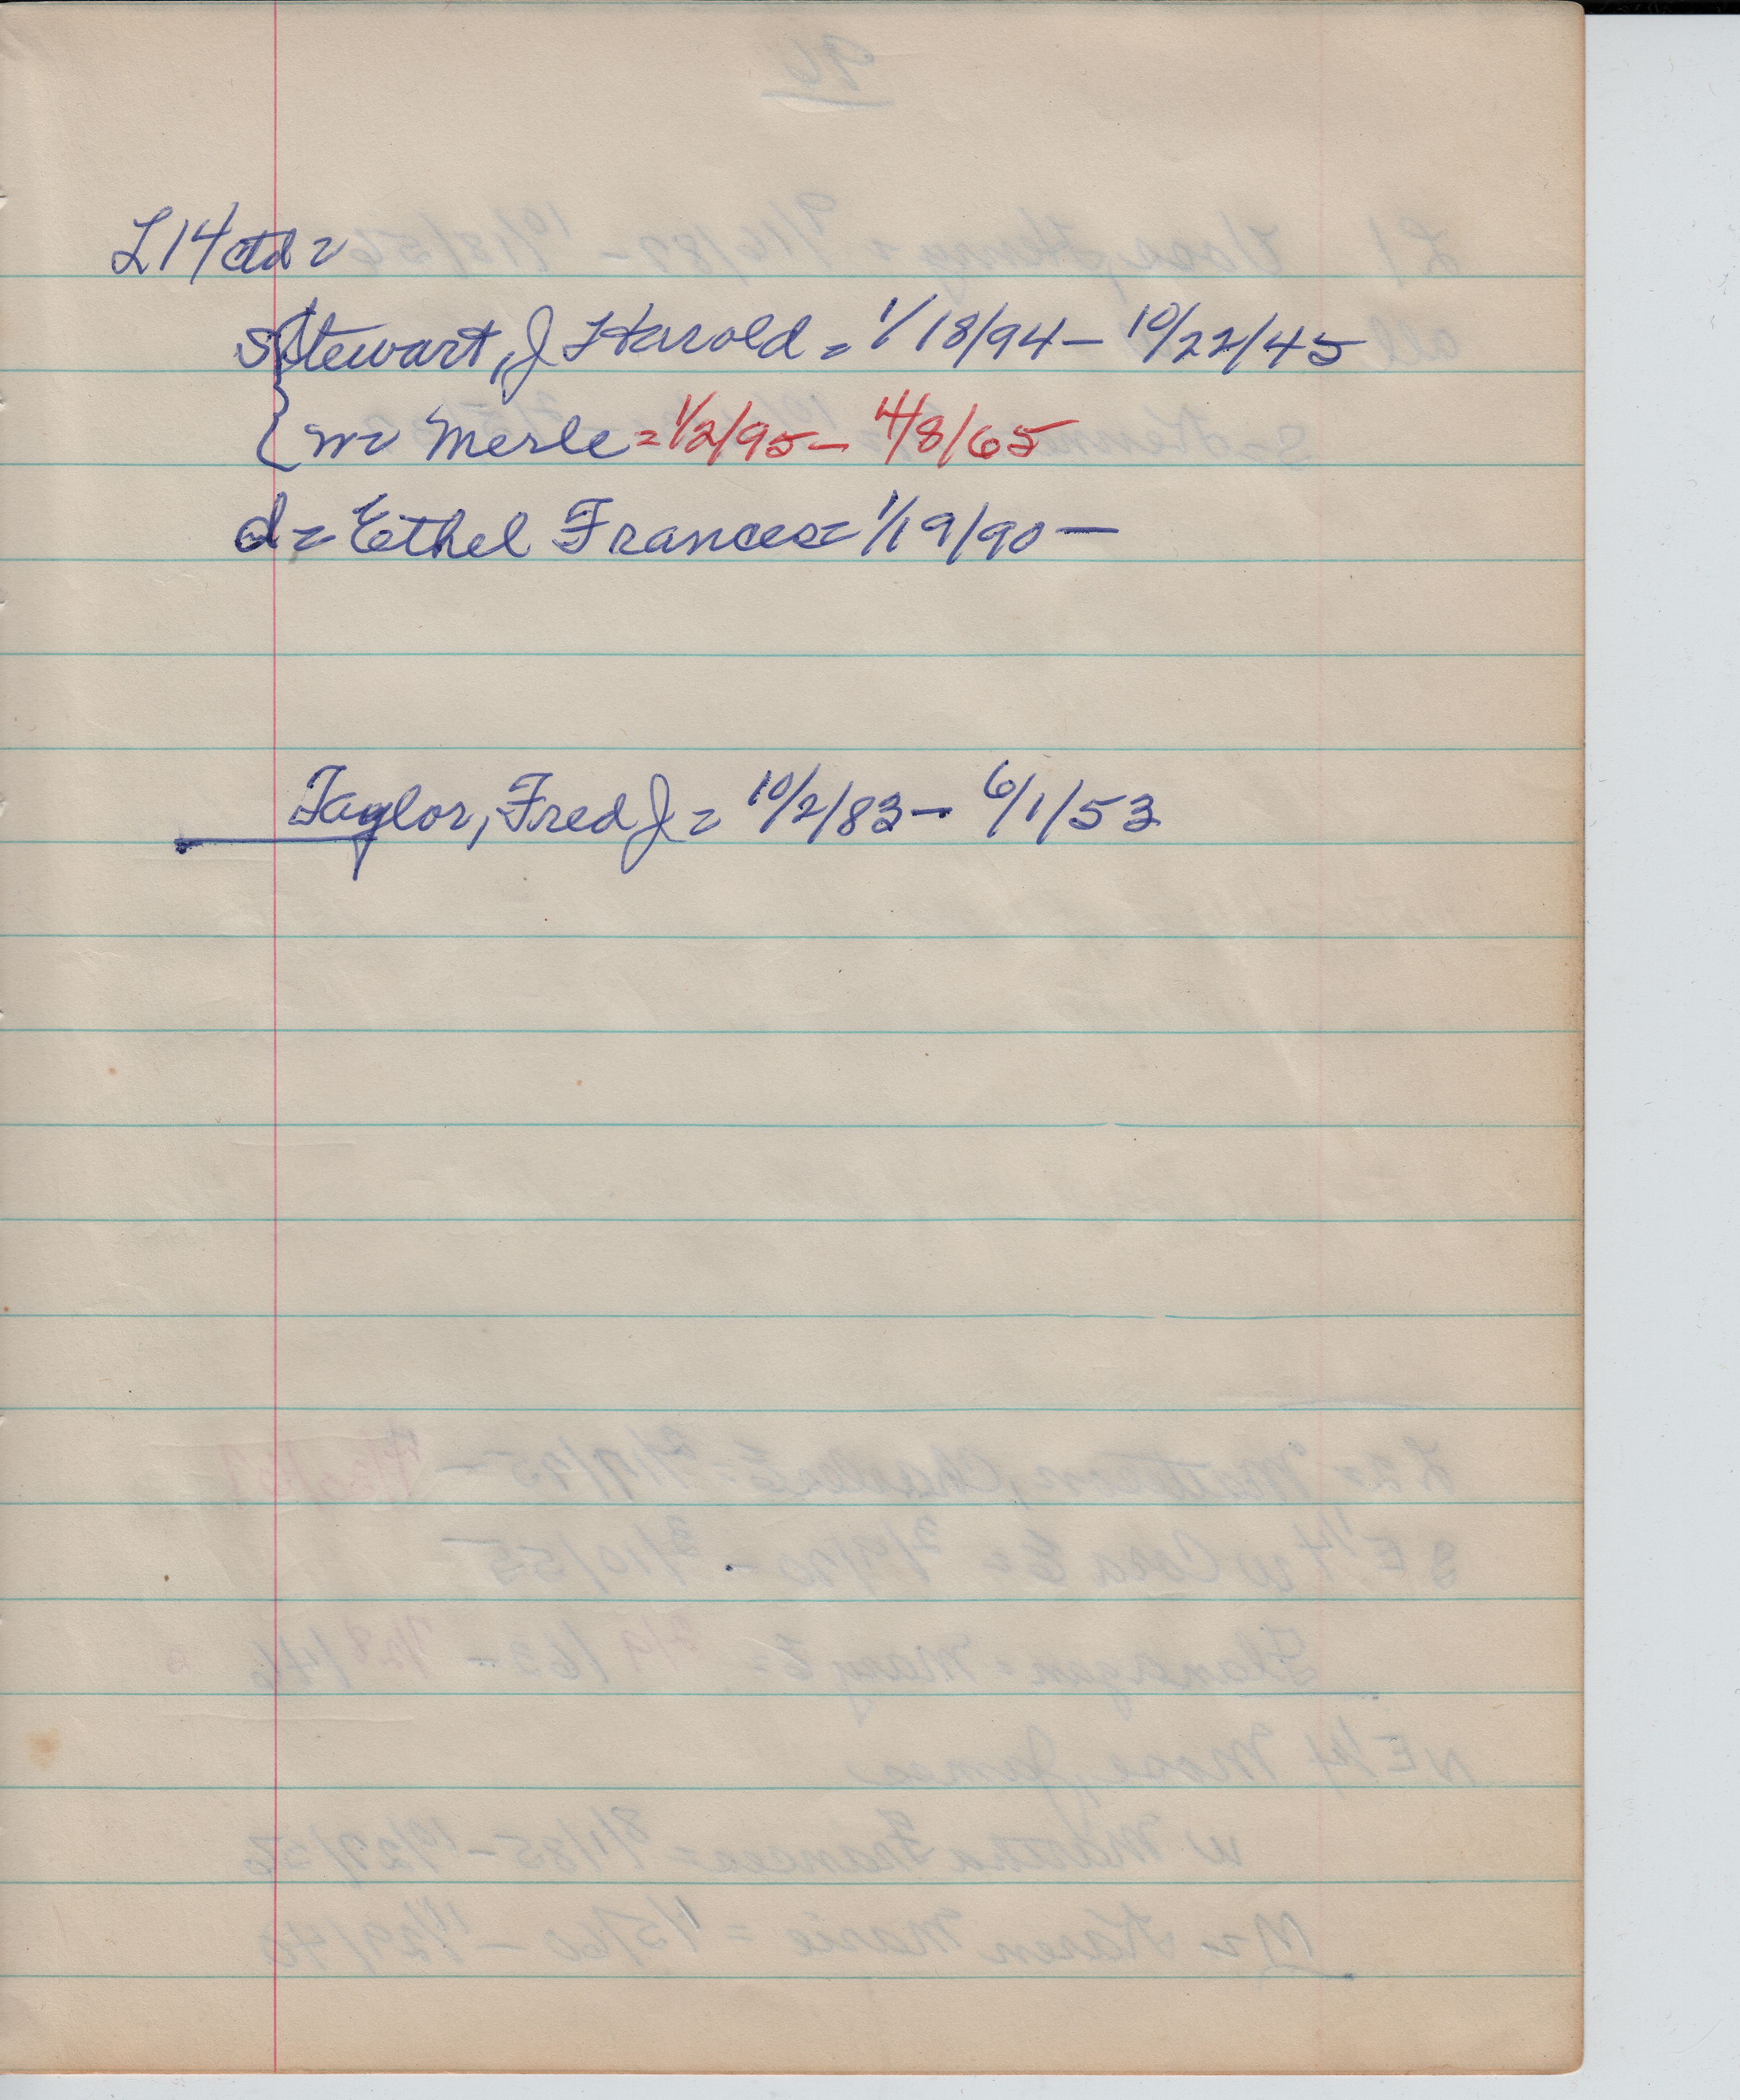 L14 ctd =
S Stewart, J Harold = 1/18/94 – 10/22/45
{ w = Merle = 1/2/95 – 4/8/65
d = Ethel Frances = 1/19/90 –
Taylor, Fred J = 10/2/83 – 6/1/53